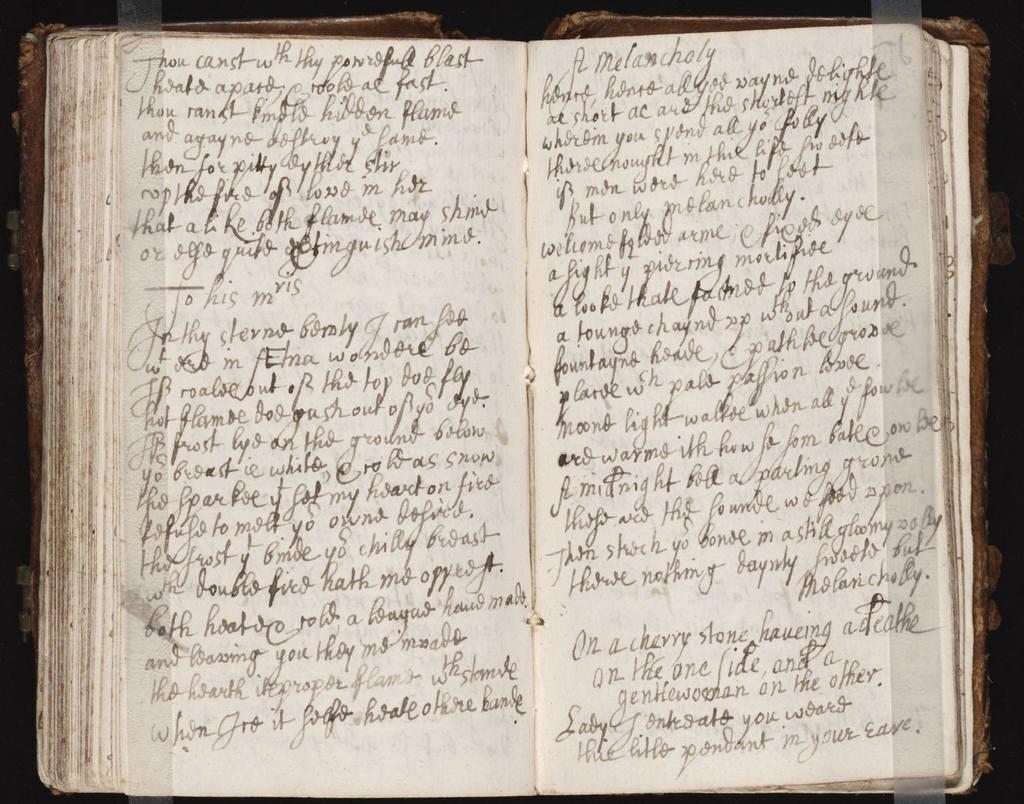 Thou canst wth thy powrefull blast
heate apace, & coole as fast.
thou canst kindle hidden flame
and agayne destroy ye same.
then for pitty eyther stir
vp the fire of love in her
that alike both flames may shine
or else quite extinguish mine.
To his mris
In thy sterne beuty I can see
wt ere in Ætna wonders be
If coales out of the top doe fly
hot flames doe gush out of yor eye.
If frost lye on the ground below
yor breast is white, & cold as snow
the sparkes yt set my heart on fire
refuse to melt yor owne desire.
the frost yt binds yor chilly breast
wth double fire hath me opprest.
both heate & cold a league have made
and leaving you they me invade
the hearth its proper flame wthstands
when Ice it selfe heates others hands
A Melancholy
hence, hence all yee vayne delights
as short as are the shortest nights
wherein you spend all yor folly
theres nought in this life sweete
if men were here to see't
But only melancholly.
welcome folded armes, & fixed eyes
a sight yt piercing mortifies
a looke thats fastned to the ground
a tounge chaynd vp wthout a sound.
fountayne heads, & pathles groves
places wch pale passion loves
moone light walkes when all ye fowles
are warmely hows'de som bats & owles
A midnight bell a parting grone
these are the sounds we feed vpon.
Then strech yor bones in a still gloomy vally
theres nothing daynty sweete but
Melancholly.
On a cherry stone haveing a deaths
on the one side, and a
gentlewoman on the other.
Lady I entreate you weare
this litle pendant in your eare.